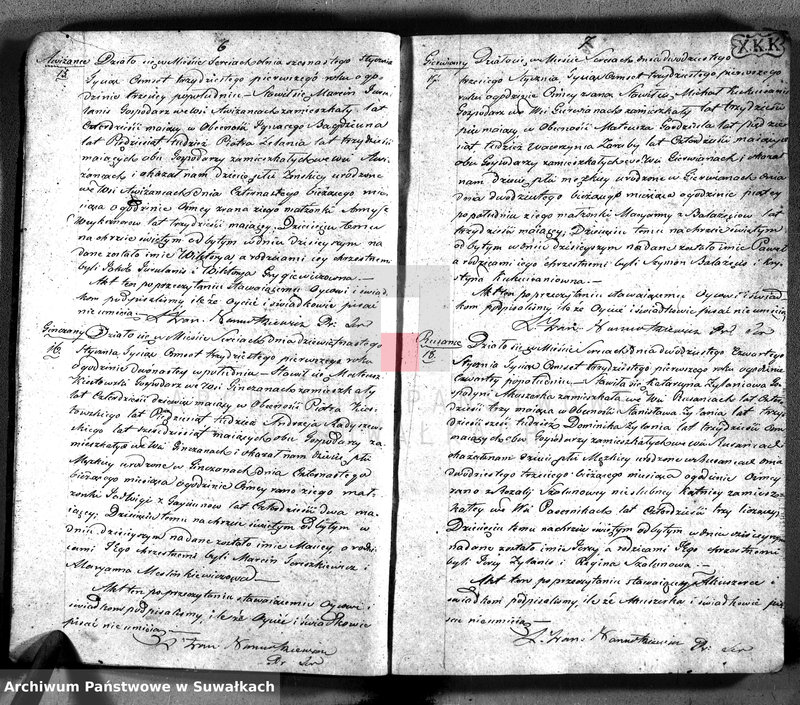 6
Awizanie
15
Działo się w Mieście Sereiach dnia szesnastego Stycznia
Tysiąc Ośmset trzydziestego pierwszego roku o go
dzinie trzeciey popołudniu – Stawił się Marcin
Gospodarz we wsi Awizaniach zamieszkały lat
Czterdzieści maiący w Obecności Ignacego
lat Piędziesiąt tudzież Piotra Zelania lat trzydzieści
maiących obu Gospodarzy zamieszkałych we Wsi Awi
zaniach i okazał nam dziecię płci Żeńskiey urodzone
we Wsi Awizaniach dnia Czternastego bieżącego mie
siąca o godzinie Ósmey zrana z iego małżonki Anny z
lat trzydzieści maiącey. Dziecięciu temu
na chrzcie świętym odbytym w dniu dzisieyszym na
dane zostało imie Wiktorya, a rodzicami iey chrzestnemi
byli Jakób i Wiktorya Grygiewiczowna. –
Akt ten po przeczytaniu stawaiącemu Oycowi i świad
kom podpisaliśmy ile że Oyciec i świadkowie pisać
nie umieią –
X. Iwan
Ginczany
16
Działo się w Mieście Sereiach dnia dziewiętnastego
Stycznia Tysiąc Ośmset trzydziestego pierwszego roku
o godzinie dwunastey w południe – Stawił się Mateusz
Gospodarz we Wsi Ginczanach zamieszkały
lat Czterdzieści dziewięć maiący w Obecności Piotra
lat Piędziesiąt tudzież Andrzeja Radyszew
skiego lat trzydzieści maiących obu Gospodarzy za
mieszkałych we Wsi Ginczanach i okazał nam dziecię płci
Męzkiey urodzone w Ginczanach dnia Czternastego
bieżącego miesiąca o godzinie Ósmey rano z iego mał
żonki Jadwigi z lat Czterdzieści dwa ma
iącey; Dziecięciu temu na chrzcie świętym odbytym w
dniu dzisieyszym nadane zostało imie Maciey, a rodzi
cami Jego chrzestnemi byli Marcin i
Maryanna
Akt ten po przeczytaniu stawaiącemu Oycowi i
świadkom podpisaliśmy, ile że Oyciec i świadkowie
pisać nie umieią –
X. Iwan
7
X.K.K
Gierwiany
17
Działo się w Mieście Sereiach dnia dwudziestego
trzeciego Stycznia Tysiąc Ośmset trzydziestego pierwszego
roku o godzinie Ósmey zrana Stawił się Michał
Gospodarz we Wsi Gierwianach zamieszkały lat trzydzieści
pięć maiący w Obecności Mateusza lat pędzie
siąt tudzież Wawrzyńca Zaręby lat Czterdzieści maiących
obu Gospodarzy zamieszkałych we Wsi Gierwianach i okazał
nam dziecię płci męzkiey urodzone w Gierwianach dnia
dnia dwudziestego bieżącego miesiąca o godzinie piątey
popołudniu z iego małżonki Maryanny z Balazejow lat
trzydzieści maiącey; Dziecięciu temu na chrzcie świętym
odbytym w dniu dzisieyszym nadane zostało imie Paweł
a rodzicami iego chrzestnemi byli Szymon i Kry
styna
Akt ten po przeczytaniu stawaiącemu Oycowi i świad
kom podpisaliśmy ile że Oyciec i świadkowie pisać nie umieią
X. Iwan
Rusanie
18
Działo się w Mieście Sereiach dnia dwudziestego Czwartego
Stycznia Tysiąc Ośmset trzydziestego pierwszego roku o godzinie
Czwartey popołudniu – Stawiła się Katarzyna Zylaniowa Go
spodyni Akuszerka zamieszkała we Wsi Rusaniach lat Czter
dzieści trzy maiąca w Obecności Stanisława Zylania lat trzy
dzieści sześć tudzież Dominika Zylania lat trzydzieści Ośm
maiących obu Gospodarzy zamieszkałych we wsi Rusaniach
okazała nam dziecię płci Męzkiey urodzone w Rusaniach dnia
dwudziestego trzeciego bieżącego miesiąca o godzinie Ósmey
rano z Rozalii niezlubney kątnicy zamiesz
kałey we Wsi lat Czterdzieści trzy liczącey.
Dziecięciu temu na chrzcie świętym odbytym w dniu dzisieyszym
nadane zostało imie Jerzy, a rodzicami Jego chrzestnemi
byli Jerzy Zylanis i Regina –
Akt ten po przeczytaniu stawaiącey Akuszerce i
świadkom podpisaliśmy ile że Akuszerka i świadkowie pi
sać nie umieią –
X. Iwan
Archiwum Państwowe w Suwałkach